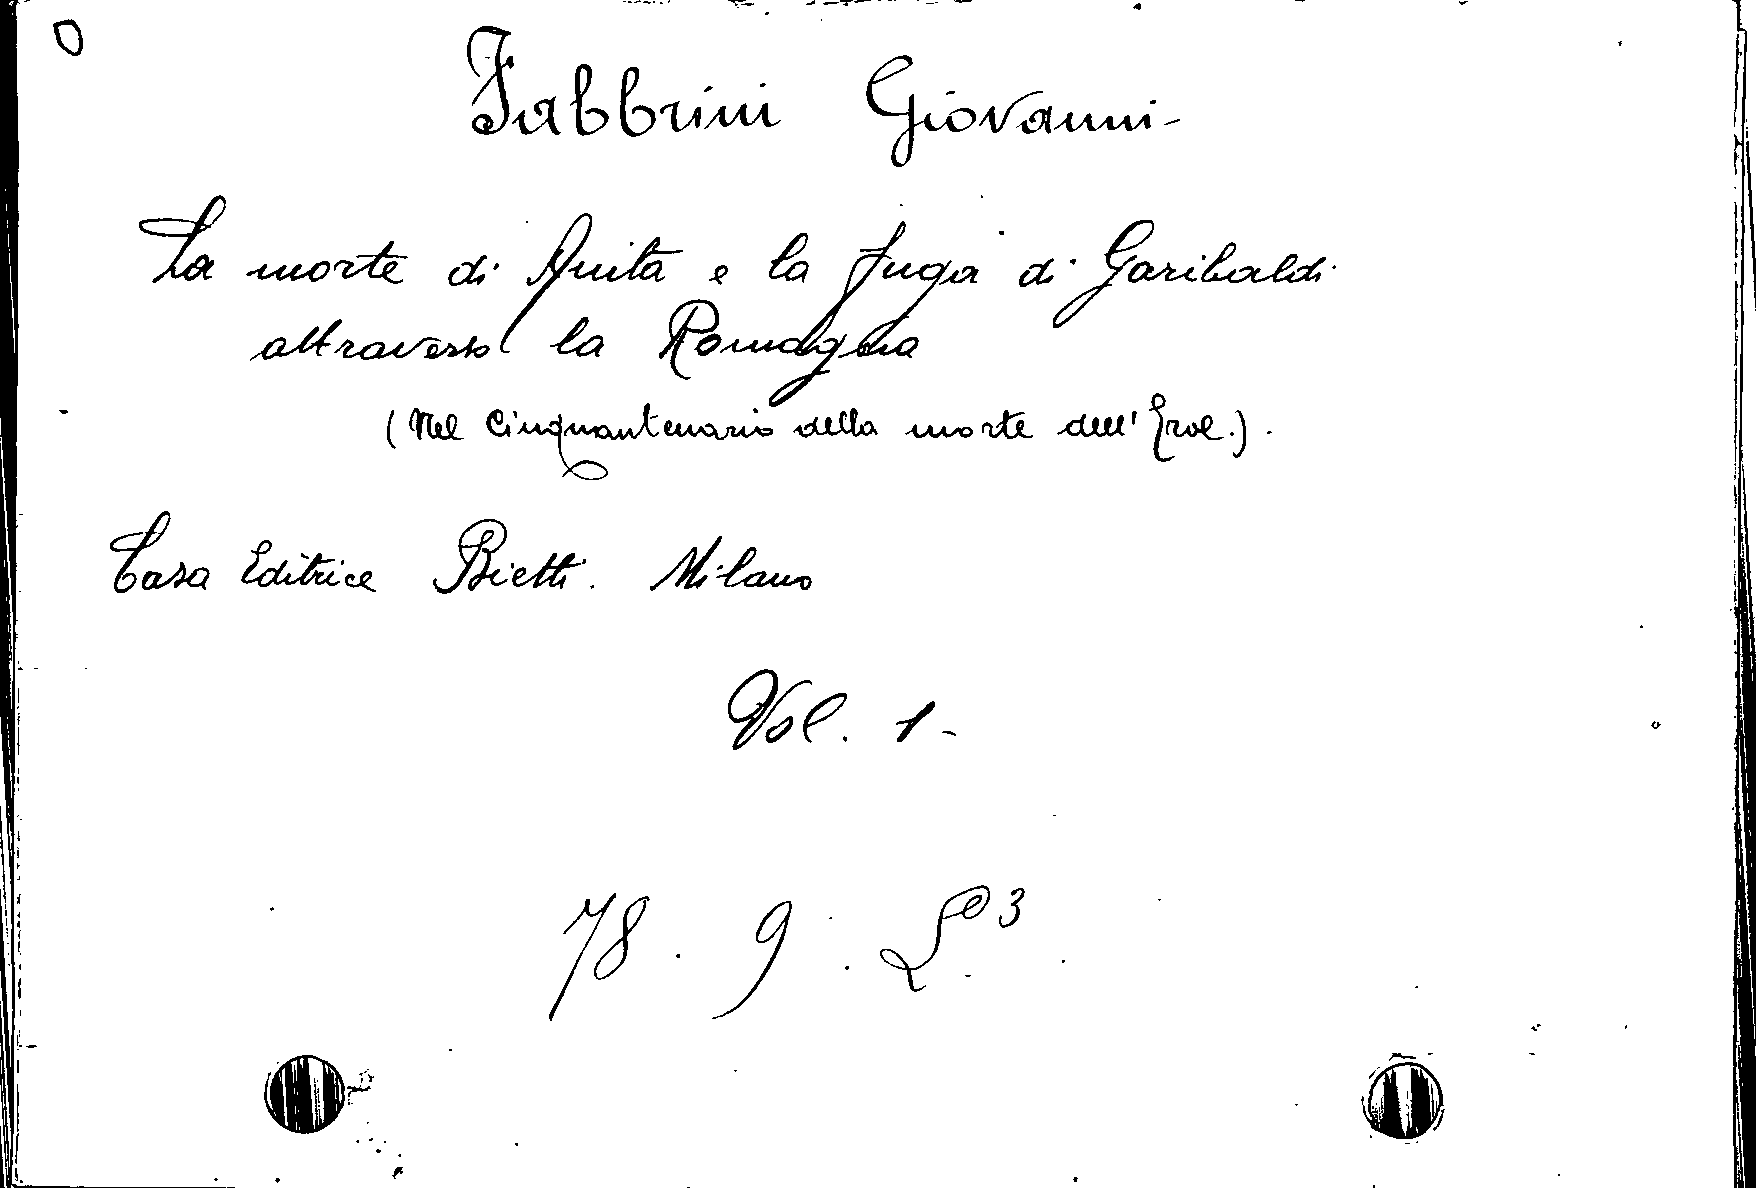 Fabbrini Giovanni-
La morte di Anita e la fuga di Garibaldi
attraverso la Romagna
(Nel Cinquantenario della morte dell'Eroe.).
Casa Editrice Bietti. Milano
Vol. 1-
78. 9. 3